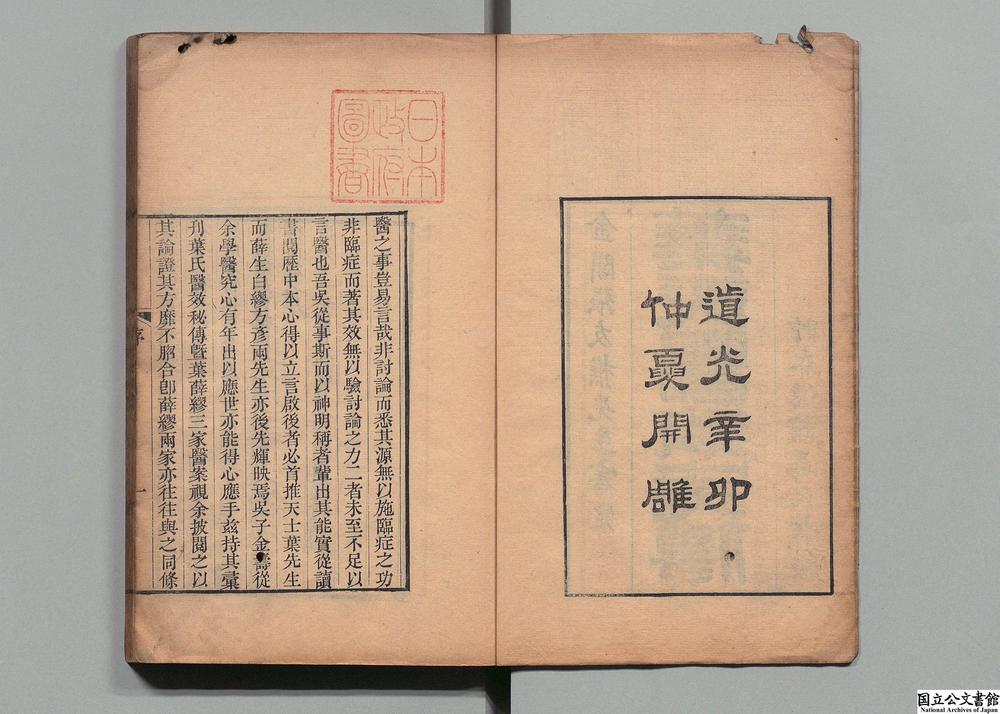 道光辛卯
仲夏開雕
日本
政府
圖書
醫之事豈易言哉非討論而悉其源無以施臨症之功
非臨症而著其效無以驗討論之力二者未至不足以
言醫也吾吳從事斯而以神明稱者輩出其能實從讀
書閱歷中本心得以立言啟後者必首推天士葉先生
而薛生白繆方彥兩先生亦後先輝映焉吳子金壽從
余學醫究心有年出以應世亦能得心應手兹持其彙
刋葉氏醫效秘傳曁葉薛繆三家醫案視余披閱之以
其論證其方靡不脗合卽薛繆兩家亦往往與之同條
序
一
国立公文書館
National Archives of Japan